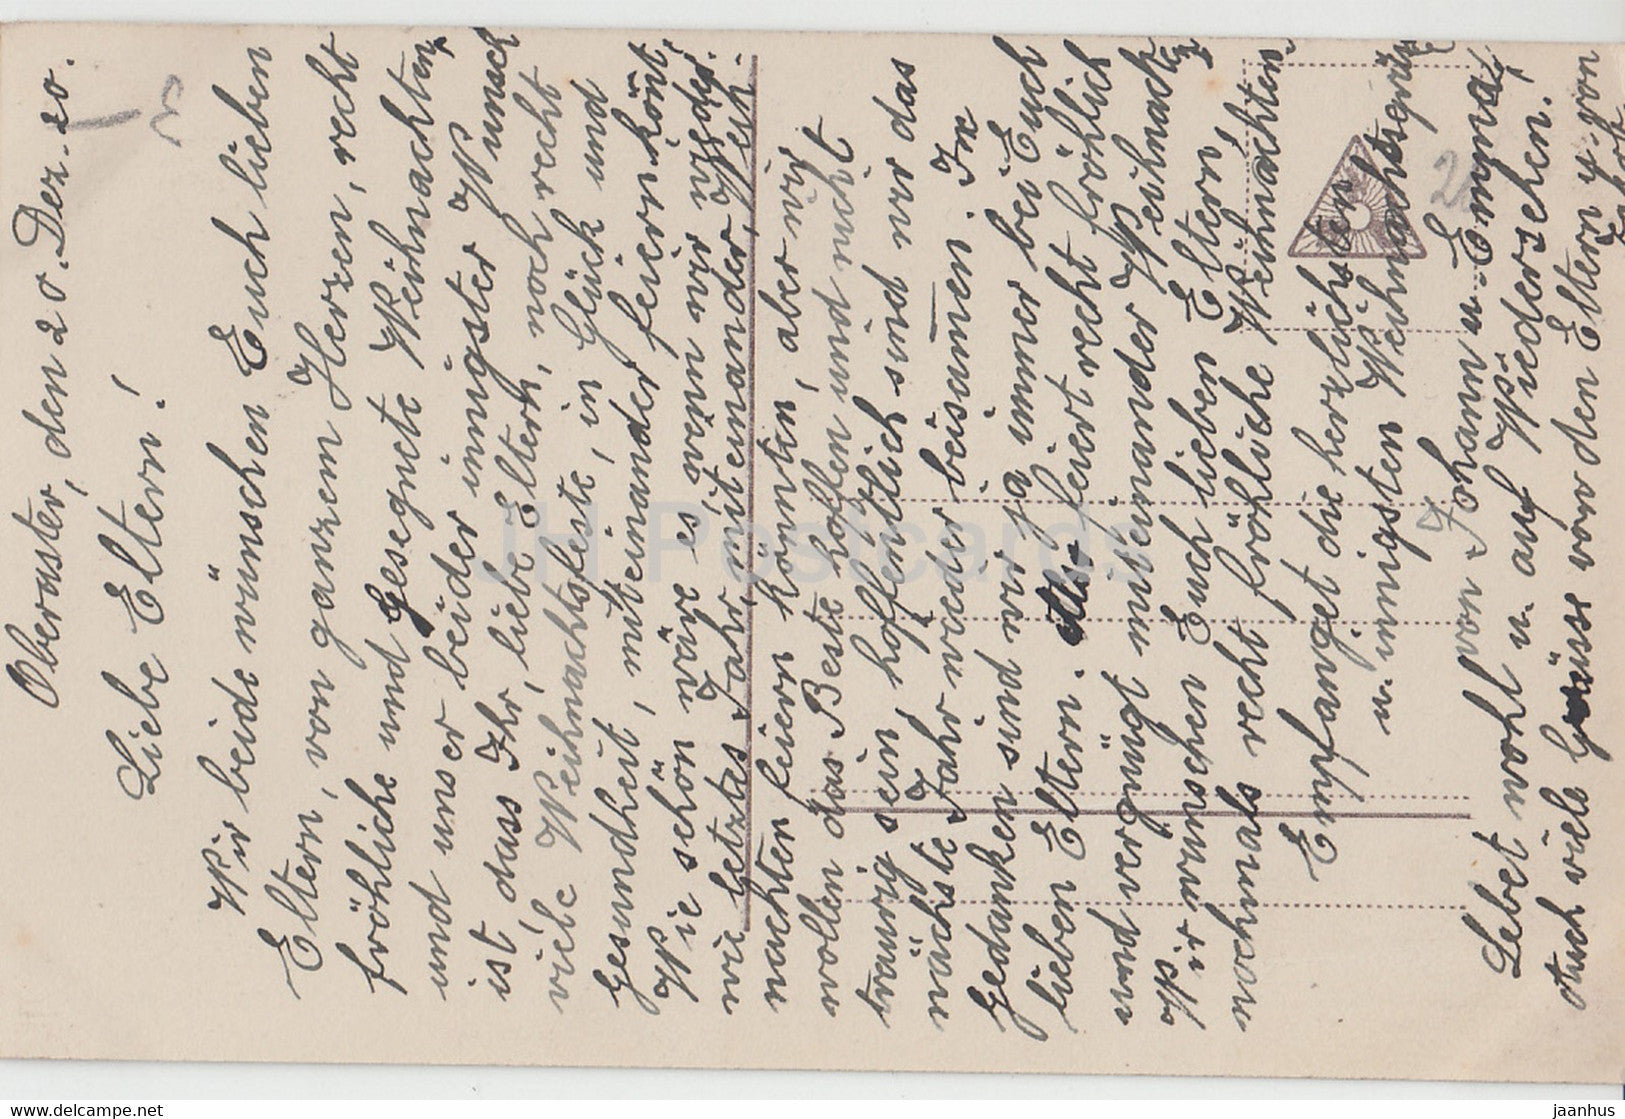 Oberaster, den 20. Dez. 20.
Liebe Eltern!
Wir beide wünschen Euch lieben
Eltern, von ganzem Herzen, recht
fröhliche und gesegnete Weihnachten,
und unser beider innigster Wunsch
ist, dass Ihr, liebe Eltern, noch recht
viele Weihnachtsfeste, in Glück und
Gesundheit, miteinander feiern könt,
Wie schön wäre es, wenn wir wieder
wie letztes Jahr, miteinander, Weih-
nachten feiern könnten, aber wir
wollen das Beste hoffen und nicht
traurig sein, hoffentlich sind wir das
nächste Jahr wieder beisamen. In
Gedanken sind wir ja immer bei Euch
lieben Eltern. feiert recht fröhlich
und vergnügt miteinander Weihnacht
Wir wünschen Euch lieben Eltern
nochmals recht fröhliche Weihnachten.
Empfanget die herzlichsten
u. innigsten Weihnachtsgrüße
von Johann u. Emma,
Lebet wohl u. auf Wiedersehen!
Auch viele Grüsse von den Eltern u. von
JH Postcards
delcampe.net
jaanhus